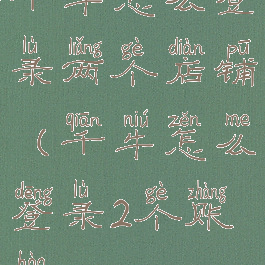 千牛怎么登
lù liǎng gè diàn pū
录两个店铺
qiān niú zěn me
(千牛怎么
dēng lù gè zhàng
登录2个账
hào